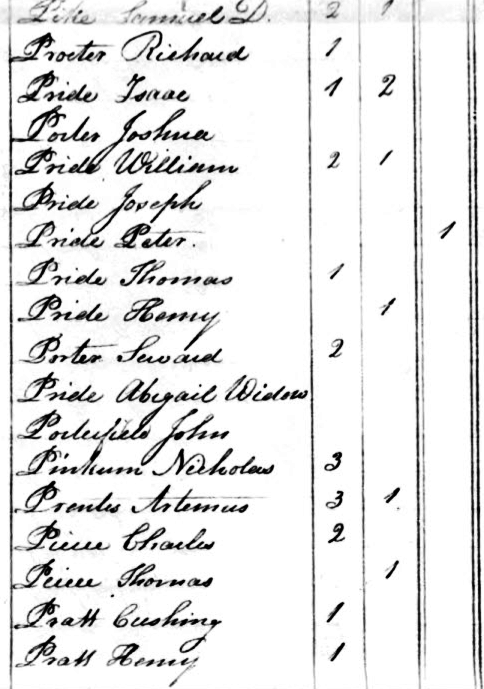 Pike Samuel D. 2 1
Procter Richard 1
Pride Isaac 1 2
Porter Joshua
Pride William 2 1
Pride Joseph
Pride Peter. 1
Pride Thomas 1
Pride Henry 1
Porter Seward 2
Pride Abigail Widow
Porterfield John
Pinkum Nicholas 3
Prentes Artemus 3 1
Peirce Charles 2
Peirce Thomas 1
Pratt Cushing 1
Pratt Henry 1